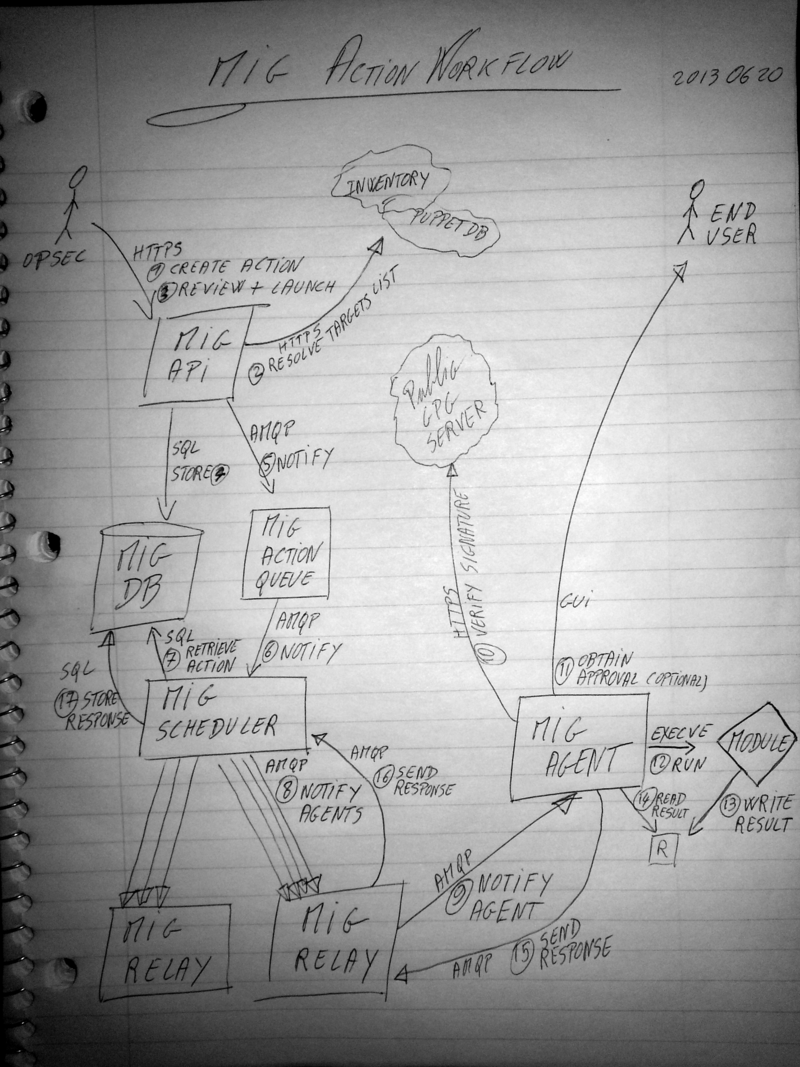 MiG ACTION WORKFLOW
2013 06 20
OPSEC
HTTPS
① CREATE ACTION
③ REVIEW + LAUNCH
INVENTORY
PUPPETDB
END
USER
MiG
APi
HTTPS
② RESOLVE TARGETS LIST
Public
GPG
SERVER
SQL
STORE ④
AMQP
⑤ NOTIFY
MiG
DB
MiG
ACTION
QUEUE
HTTPS
⑩ VERIFY SIGNATURE
GUi
SQL
⑦ RETRIEVE
ACTION
AMQP
⑥ NOTIFY
SQL
⑰ STORE
RESPONSE
MiG
SCHEDULER
⑪ OBTAIN
APPROVAL (OPTIONAL)
MiG
AGENT
EXECVE
⑫ RUN
MODULE
AMQP
⑧ NOTIFY
AGENTS
AMQP
⑯ SEND
RESPONSE
⑭ READ
RESULT
⑬ WRITE
RESULT
R
AMQP
⑨ NOTIFY
AGENT
MiG
RELAY
MiG
RELAY
AMQP
⑮ SEND
RESPONSE